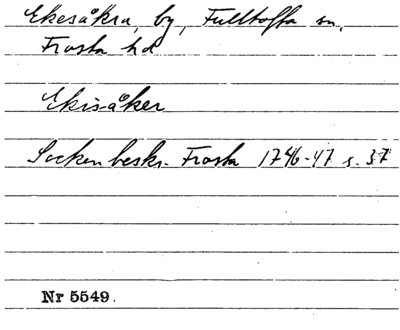 Ekesåkra, by, Fulltofta sn,
Frosta hd
Ekisåker
Sockenbeskr. Frosta 1746-47 s. 37
Nr 5549.